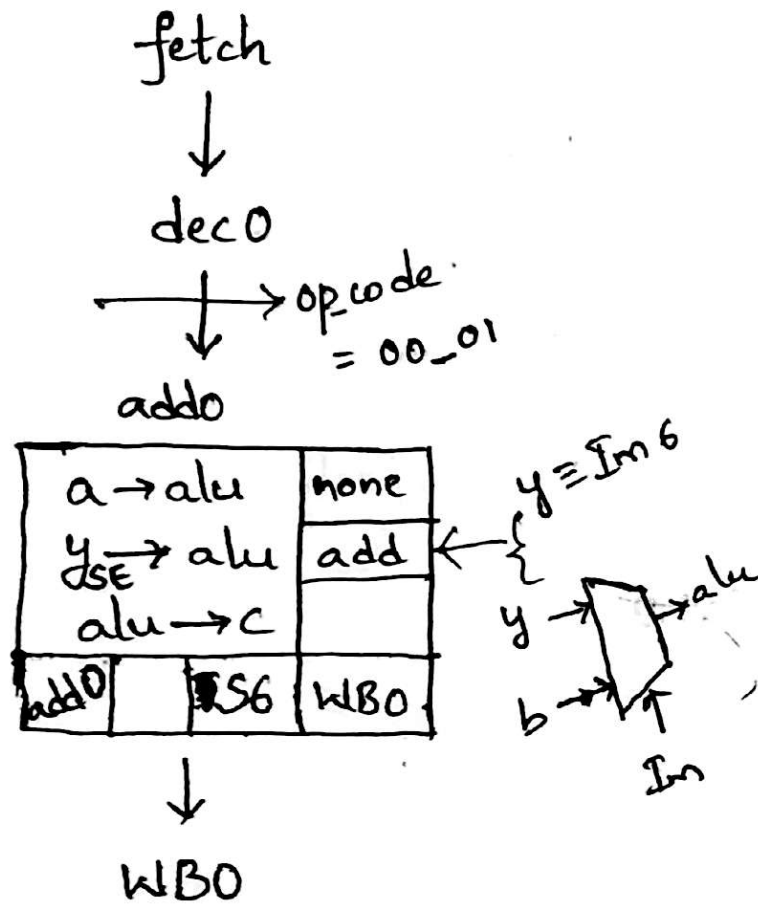 fetch
↓
dec0
→ op_code
= 00_01
add0
a → alu
none
y_SE → alu
add
alu → c
add0
S6
WB0
y ≡ Im 6
y →
→ alu
b →
Im
WB0